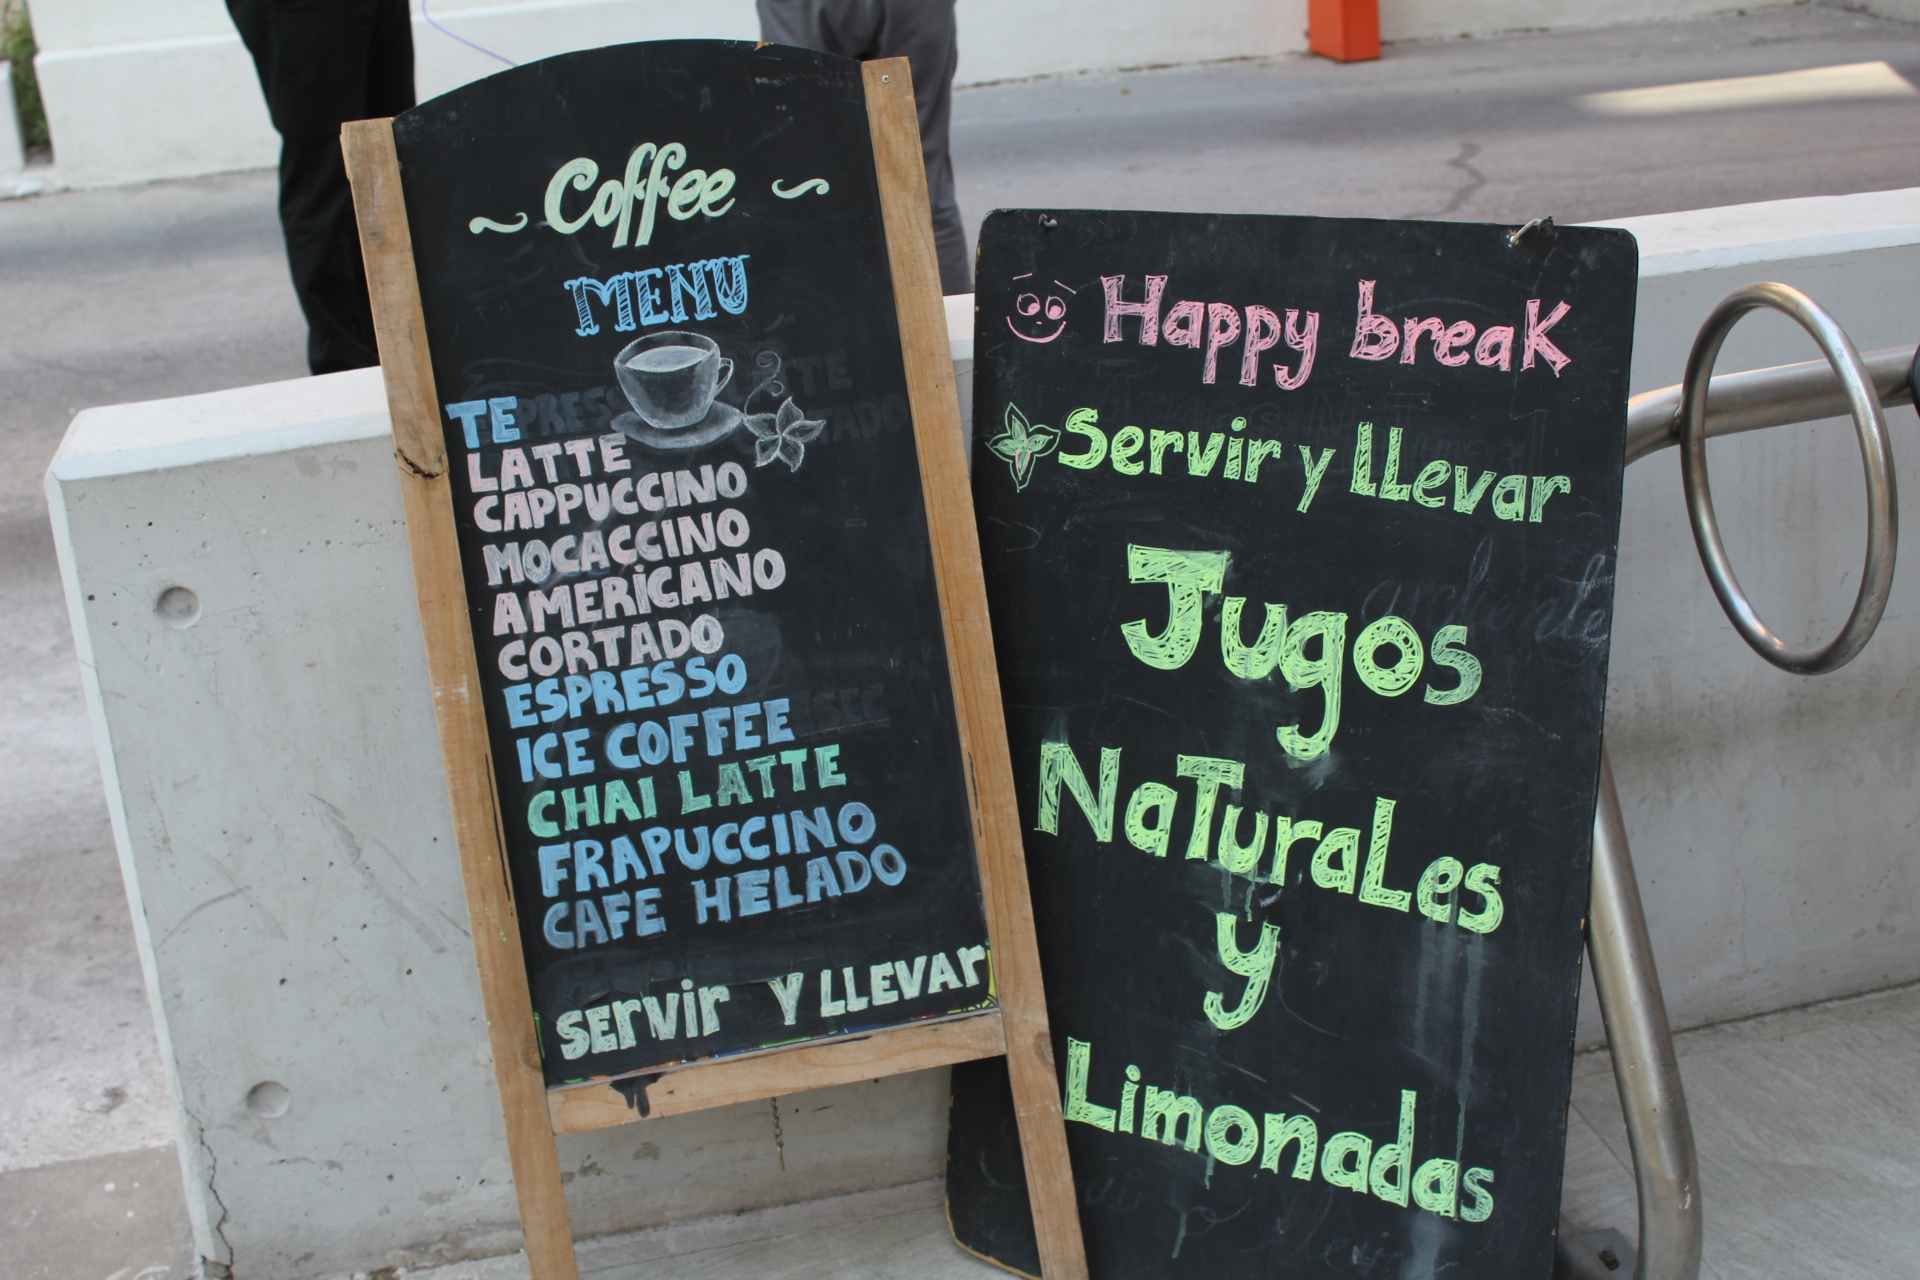 ~ Coffee ~
MENU
TE
LATTE
CAPPUCCINO
MOCACCINO
AMERICANO
CORTADO
ESPRESSO
ICE COFFEE
CHAI LATTE
FRAPUCCINO
CAFE HELADO
SERVIR Y LLEVAR
Happy break
Servir y LLevar
Jugos
NaTuraLes
y
Limonadas